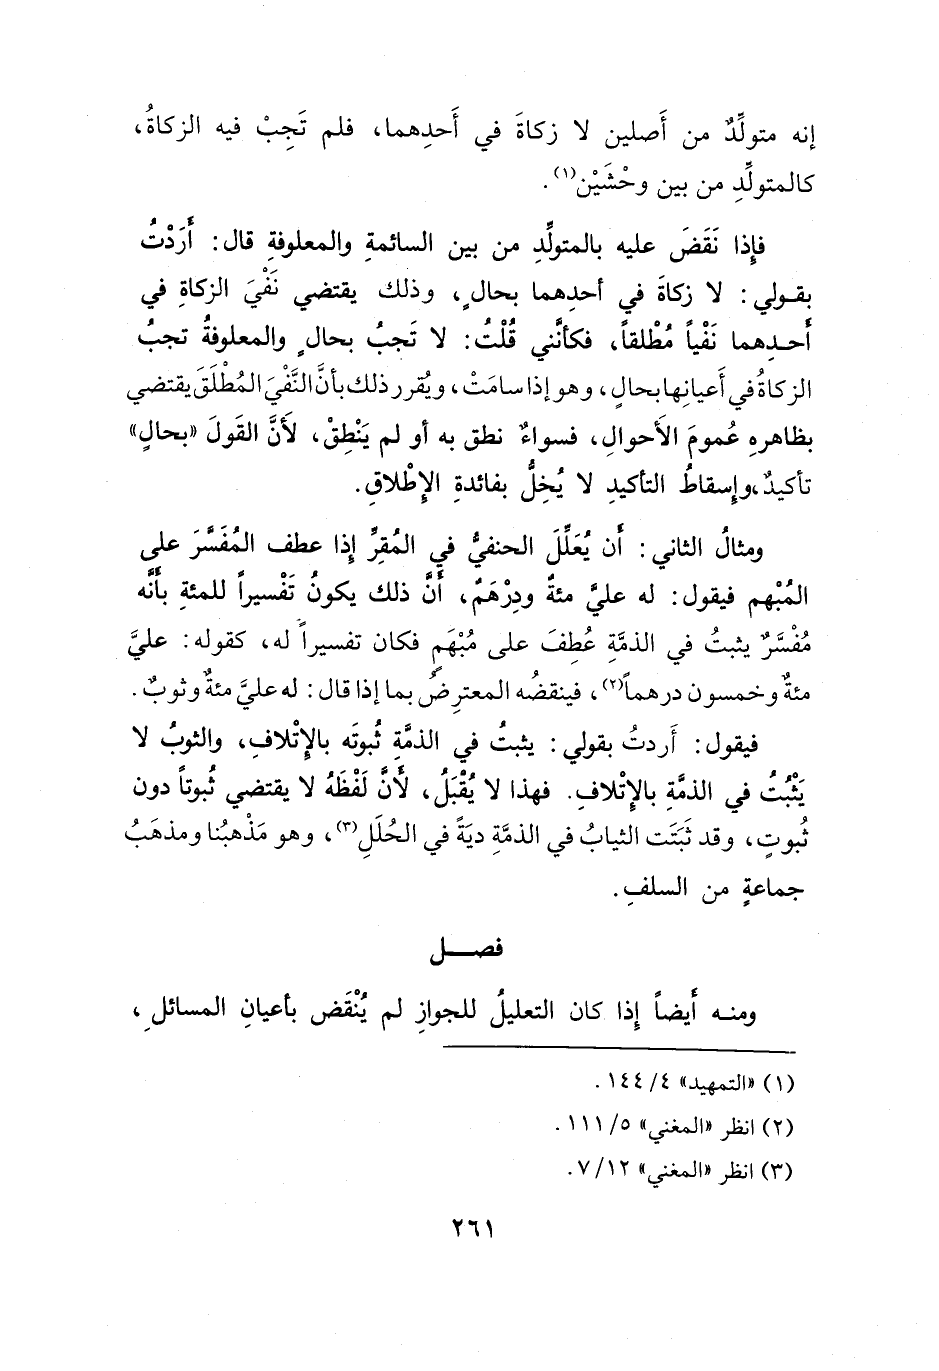 إنه متولِّدٌ من أَصلين لا زكاةَ في أَحدِهما، فلم تَجِبْ فيه الزكاةُ،
كالمتولِّدِ من بين وحْشَيْن(١).
فإِذا نَقَضَ عليه بالمتولِّدِ من بين السائمةِ والمعلوفةِ قال: أَرَدْتُ
بقولي: لا زكاةَ في أحدِهما بحالٍ، وذلك يقتضي نَفْيَ الزكاةِ في
أَحدِهما نَفْياً مُطْلقاً، فكأنَّني قُلْتُ: لا تَجبُ بحالٍ والمعلوفةُ تجبُ
الزكاةُ في أَعيانِها بحالٍ، وهو إذا سامَتْ، ويُقرر ذلك بأنَّ النَّفْيَ المُطْلَقَ يقتضي
بظاهرِه عُمومَ الأَحوالِ، فسواءٌ نطق به أو لم يَنْطِقْ، لأَنَّ القَولَ «بحالٍ»
تأكيدٌ، وإِسقاطُ التأكيدِ لا يُخِلُّ بفائدةِ الإِطْلاقِ.
ومثالُ الثاني: أَن يُعَلِّلَ الحنفيُّ في المُقِرِّ إِذا عطف المُفَسَّرَ على
المُبْهم فيقول: له عليَّ مئةٌ ودِرْهَمٌ، أَنَّ ذلك يكونُ تَفْسيراً للمئةِ بأَنَّه
مُفْسَّرٌ يثبتُ في الذمَّةِ عُطِفَ على مُبْهَمٍ فكان تفسيراً له، كقوله: عليَّ
مئةٌ وخمسون درهماً(٢)، فينقضُه المعترِضُ بما إذا قال: له عليَّ مئةٌ وثوبٌ.
فيقول: أَردتُ بقولي: يثبتُ في الذمَّةِ ثُبوتَه بالإِتْلافِ، والثوبُ لا
يَثْبُتُ في الذمَّةِ بالإِتْلافِ. فهذا لا يُقْبَلُ، لأَنَّ لَفْظَهُ لا يقتضي ثُبوتاً دون
ثُبوتٍ، وقد ثَبَتَت الثيابُ في الذمَّةِ ديَةً في الحُلَلِ(٣)، وهو مَذْهبُنا ومذهَبُ
جماعةٍ من السلفِ.
فصل
ومنه أَيضاً إِذا كان التعليلُ للجوازِ لم يُنْقَض بأعيانِ المسائلِ،
(١) «التمهيد» ٤/ ١٤٤.
(٢) انظر «المغني» ٥/ ١١١.
(٣) انظر «المغني» ١٢/ ٧.
٢٦١